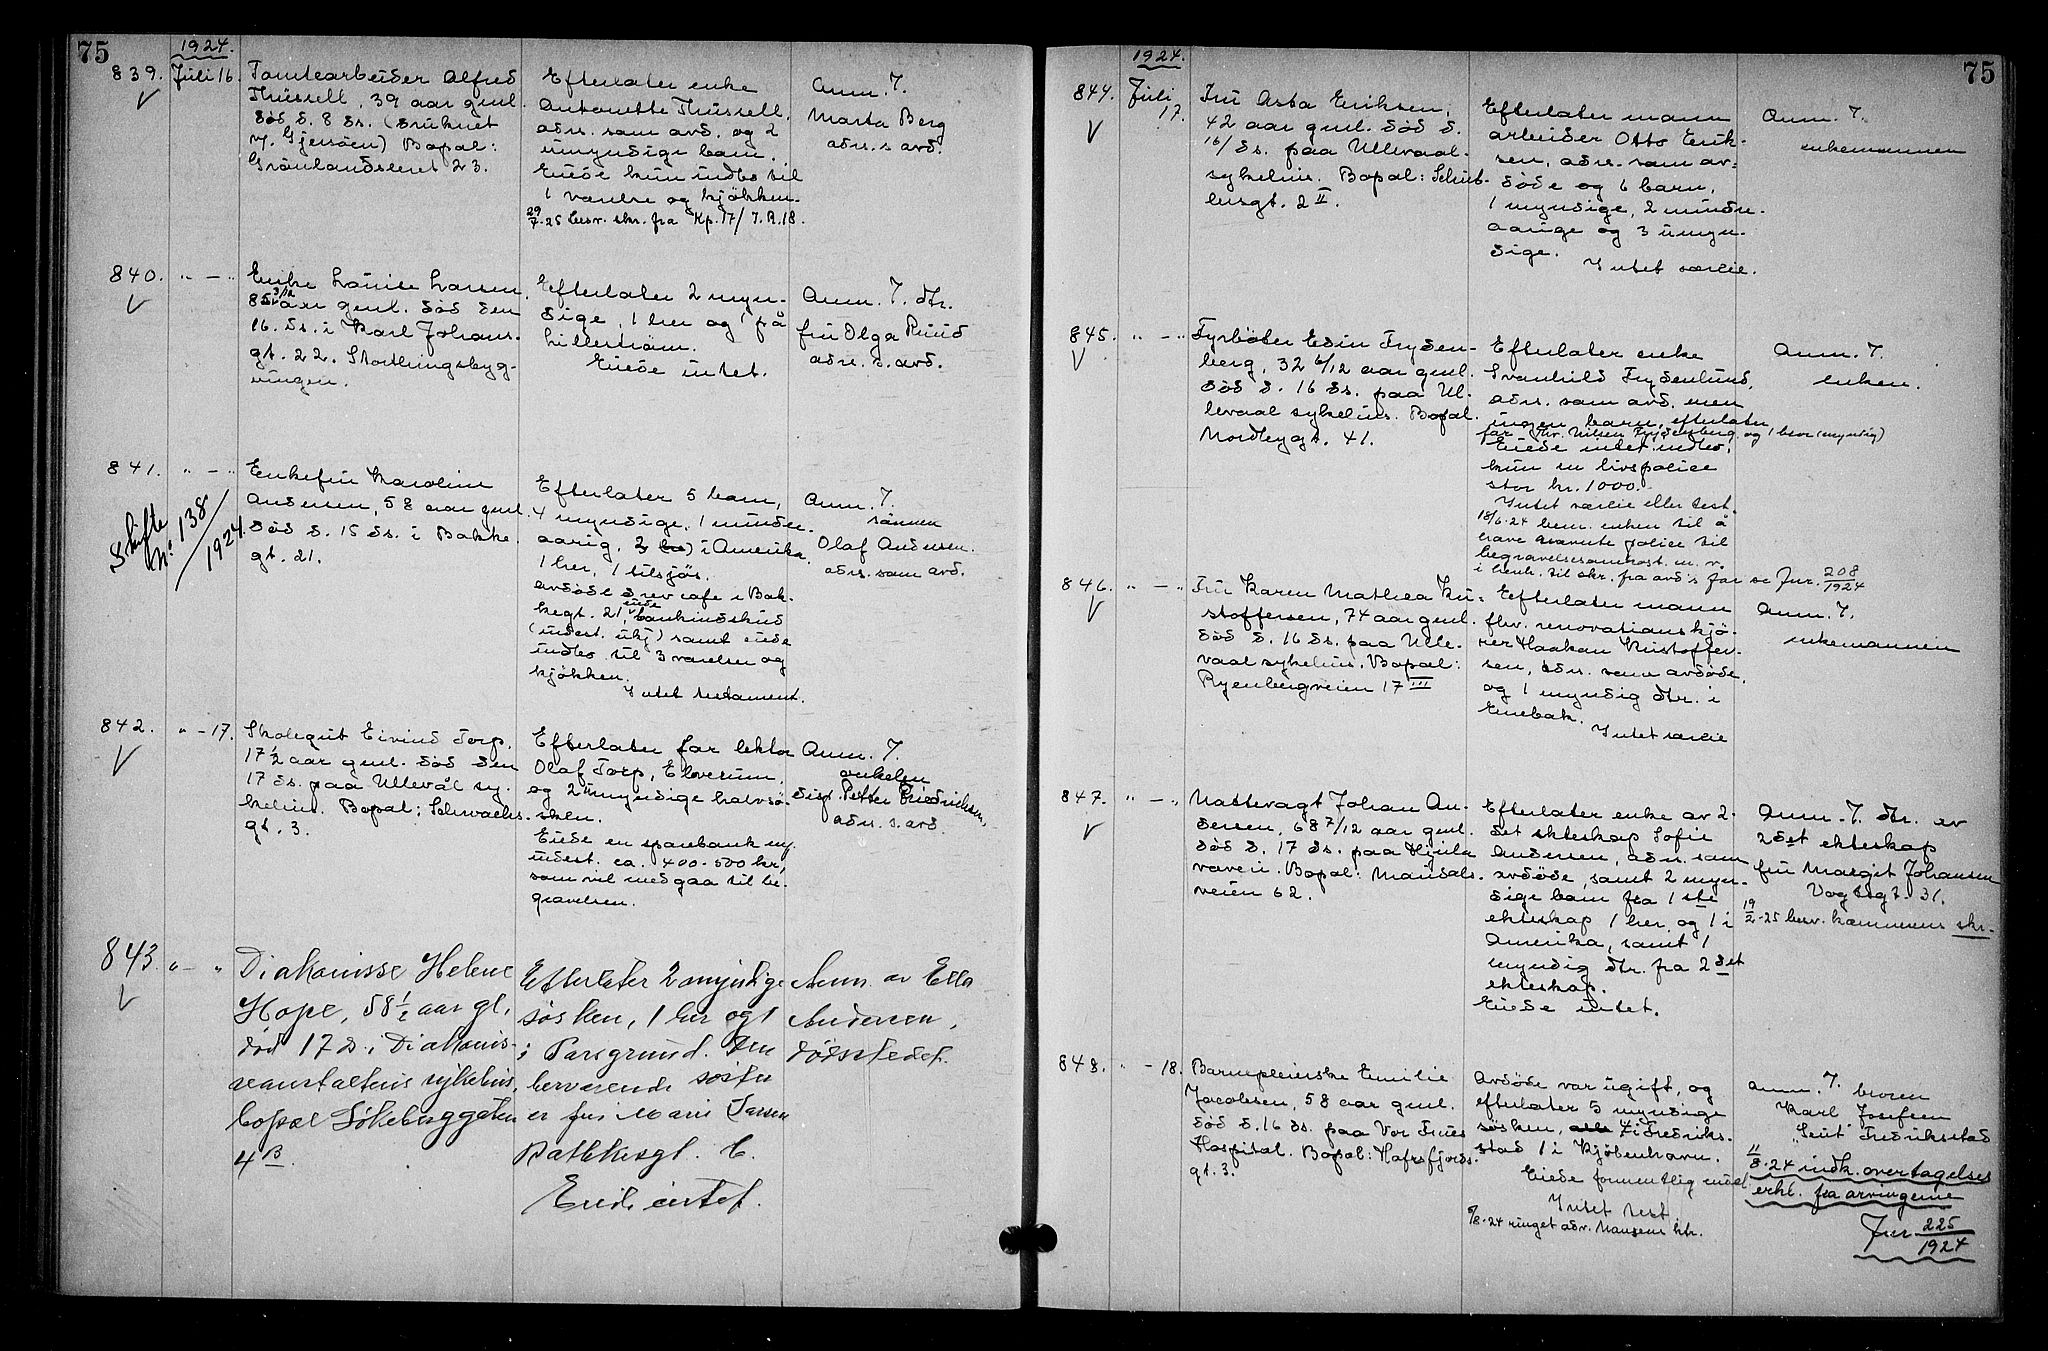 75
1924.
839. Juli 16. Tomtearbeider Alfred
Thussell, 39 aar gml.
död d. 8 ds. (druknet
v. Gjersöen) Bopæl:
Grönlandsleret 23.
Efterlater enke
Antonette Thussell,
adr. som avd. og 2
umyndige barn.
Eiede kun indbo til
1 værelse og kjökken.
29/7.25 besv. skr. fra Kp. 17/ J.R.18.
Anm. 7.
Marta Berg
adr. s. avd.
840. " - " Enke Louise Larsen,
85 3/12 aar gml. död den
16. ds. i Karl Johans-
gt. 22. Stortingsbyg-
ningen.
Efterlater 2 myn-
dige, 1 her og 1 på
Lilleström.
Eiede intet.
Anm. 7. dtr.
fru Olga Ruud
adr. s. avd.
841. " - " Enkefru Karoline
Andersen, 58 aar gml.
död d. 15 ds. i Bakke-
gt. 21.
Skifte
No. 138/1924
Efterlater 5 barn,
4 myndige, 1 minder-
aarig, 2 i Amerika,
1 her, 1 tilsjös.
avdöde drev cafe i Bak-
kegt. 21, eiede bankindskud
(indest. ukj) samt eiede
indbo til 3 værelser og
kjökken.
Intet testament.
Anm. 7.
sönnen
Olaf Andersen.
adr. som avd.
842. " - 17. Skolegut Eivind Torp,
17 1/2 aar gml. död den
17 ds. paa Ullevål sy-
kehus. Bopæl: Schwachs-
gt. 3.
Efterlater far lektor
Olaf Torp, Elverum,
og 2 umyndige halvsö-
sken.
Eiede en sparebank m.
indest. ca. 400-500 kr,
som vil medgaa til be-
gravelsen.
Anm. 7.
onkelen
disp. Petter Friedrichsen,
adr. s. avd.
843. " - " Diakonisse Helene
Hope, 58 1/2 aar gl,
död 17 ds. i Diakonis-
seanstaltens sykehus,
bopæl Løkeberggaten
4 B.
Efterlater 2 myndige
søsken, 1 her og 1
i Porsgrund. Den
herværende søster
er fru Marie Larsen
Rathkesgt. 6.
Eiede intet.
Anm. av Ella
Andersen,
dödsstedet.
75
1924.
844. Juli 17. Fru Asta Eriksen,
42 aar gml. död d.
16/ ds. paa Ullevaal
sykehus. Bopæl: Schüb-
lersgt. 2 II.
Efterlater mann
arbeider Otto Erik-
sen, adr. som av-
döde og 6 barn,
1 myndige, 2 mindre-
aarige og 3 umyn-
dige.
Intet særeie.
Anm. 7.
enkemannen
845. " - " Fyrböter Edin Fryden-
berg, 32 6/12 aar gml.
död d. 16 ds. paa Ul-
levaal sykehus. Bopæl.
Nordbygt. 41.
Efterlater enke
Svanhild Frydenlund,
adr. som avd. men
ingen barn, efterlater
far Thr. Nilsen Frydenberg og 1 bror (myndig)
Eiede intet indbo,
kun en livspolice
stor kr. 1000.
Intet særeie eller test.
18/6.24 bem. enken til å
have avævnte police til
begravelsesomkost. m. v.
i henh. til skr. fra avd's far se Jur. 208/1924
Anm. 7.
enken.
846. " - " Fru Karen Mathea Kri-
stoffersen, 74 aar gml.
död d. 16 ds. paa Ulle-
vaal sykehus. Bopæl:
Ryenbergveien 17 III
Efterlater mann
fhv. renovationskjö-
rer Haakon Kristoffer-
sen, adr. som avdöde,
og 1 myndig dtr. i
Enebak.
Intet særeie
Anm. 7.
enkemannen
847. " - " Nattevagt Johan An-
dersen, 68 7/12 aar gml.
död d. 17 ds. paa Hjula
væveri. Bopæl: Maridals-
veien 62.
Efterlater enke av 2-
det ekteskap Sofie
Andersen, adr. som
avdöde, samt 2 myn-
dige barn fra 1ste
ekteskap 1 her, og 1 i
Amerika, samt 1
myndig dtr. fra 2det
ekteskap.
Eiede intet.
Anm. 7. dtr. av
2det ekteskap
fru Margit Johansen
Vogtsgt. 31.
19/2.25 besv. kæmnerens skr.
848. " - 18. Barnepleierske Emilie
Jacobsen, 58 aar gml.
död d. 16 ds. paa Vor Frues
Hospital. Bopæl: Hafrsfjords-
gt. 3.
Avdöde var ugift, og
efterlater 5 myndige
sösken, 4 i Fredrik-
stad 1 i Kjöbenhavn.
Eiede formentlig endel.
Intet test.
/8.24 ringet adv. Mansens ktr.
anm. 7. broren
Karl Josefsen
"Lent" Fredrikstad
11/8.24 indk. overtagelses
erkl. fra arvingerne
Jur 225/1924